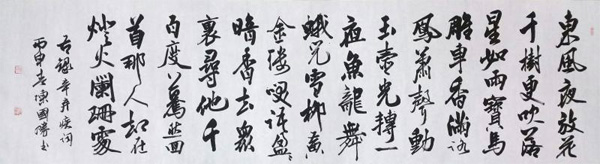 東風夜放花
千樹更吹落
星如雨寶馬
雕車香滿路
鳳簫聲動
玉壺光轉一
夜魚龍舞
蛾兒雪柳黃
金縷笑語盈盈
暗香去眾
裏尋他千
百度驀然回
首那人卻在
燈火闌珊處
辛弃疾詞
丙申春陳國书